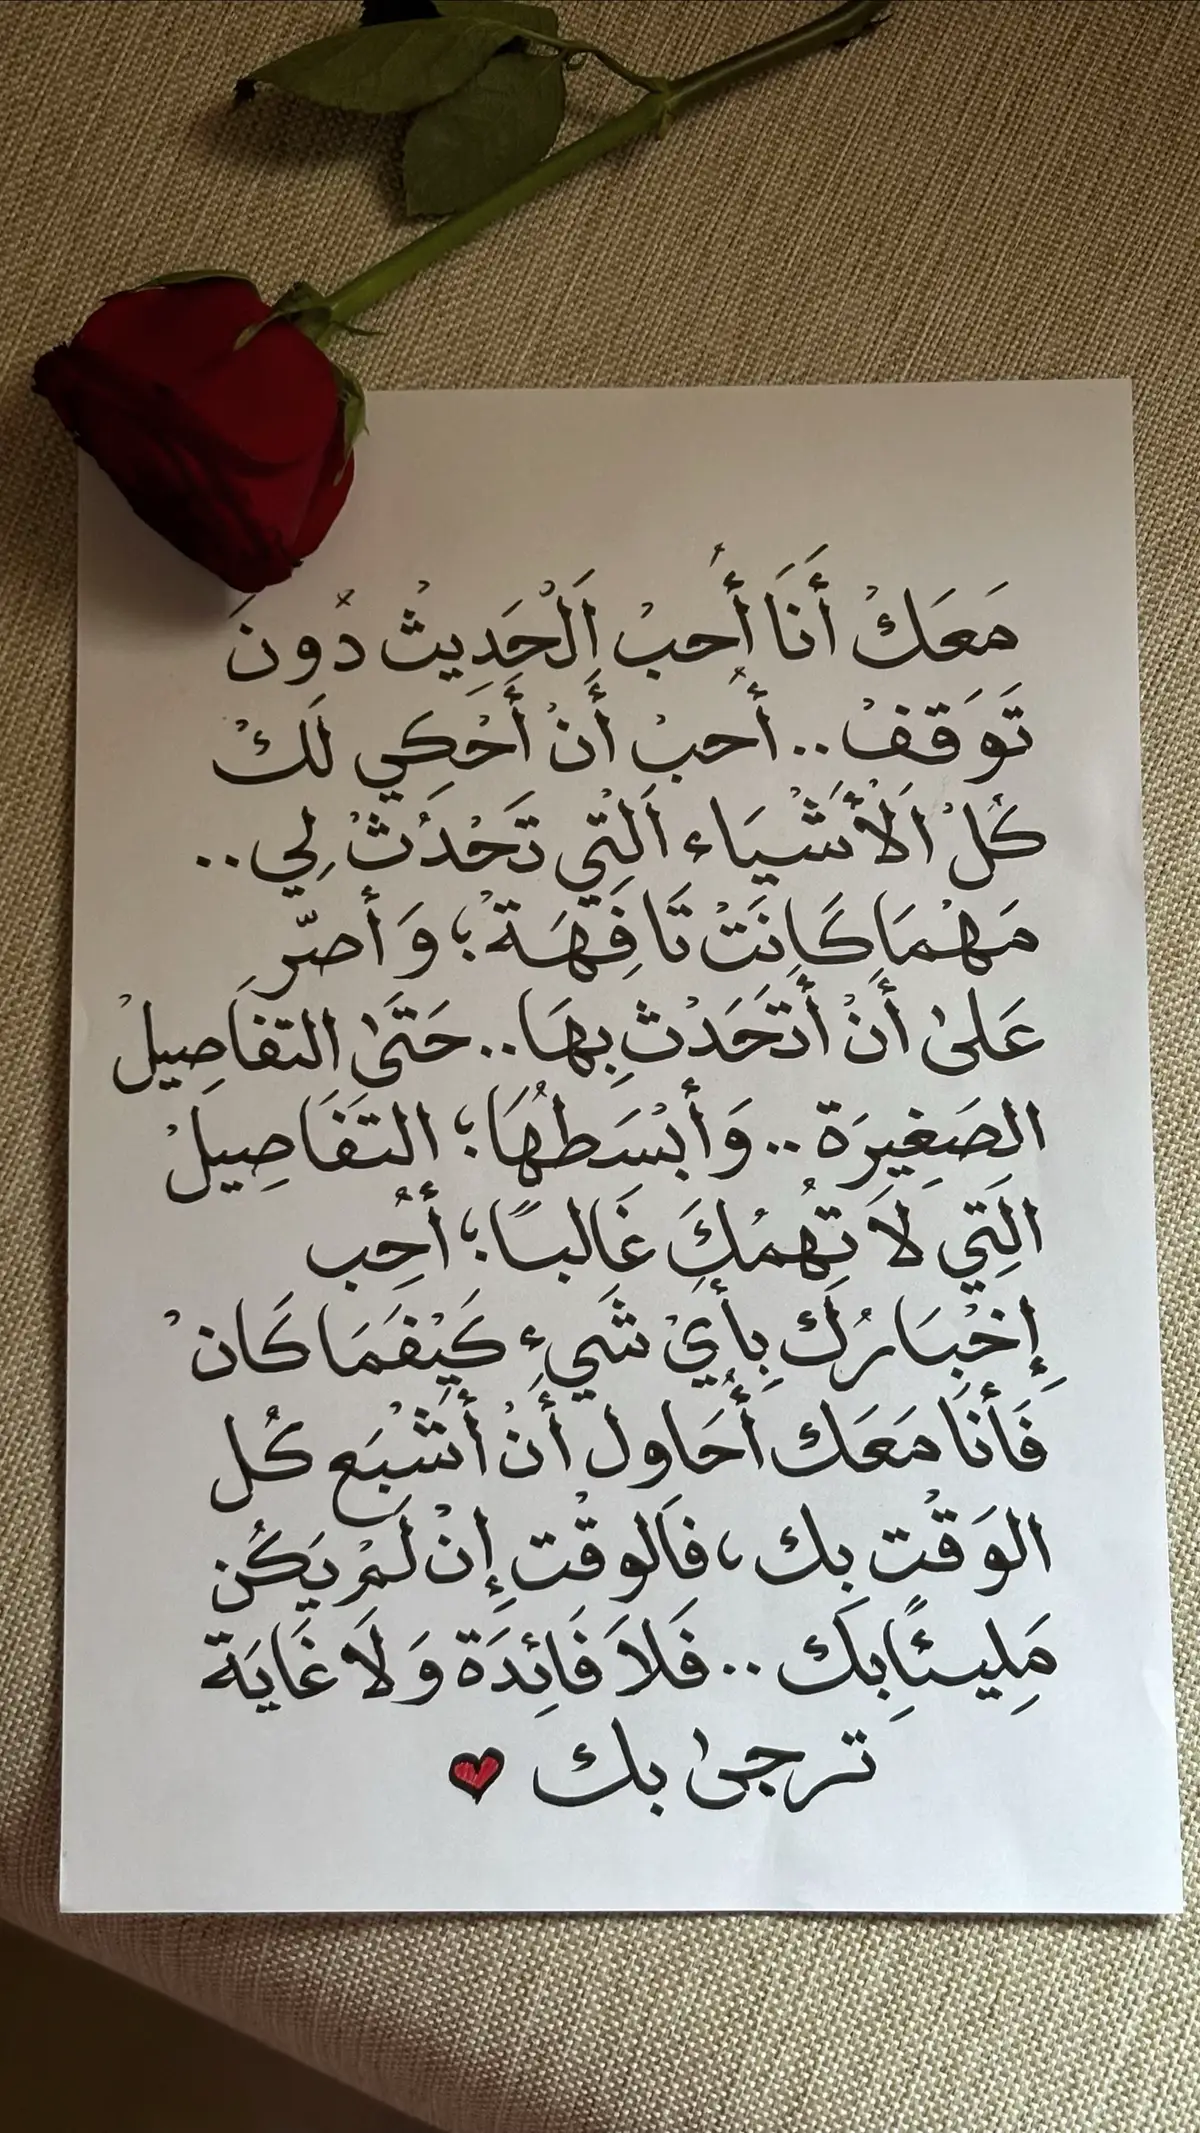 مَعَكْ أَنَا أُحبْ اَلْحَدِيثْ دُونَ
تَوَقفْ .. أُحبْ أَنْ أَحْكِي لَكْ
كُلْ اَلْأَشْيَاء اَلتِي تَحْدُثْ لِي ..
مَهْمَا كَانَتْ تَافِهَةْ ؛ وَأصّرِ
عَلىٰ أَنْ أَتَحَدْث بِهَا .. حَتَىٰ التفَاصِيلْ
الصَغِيرَة .. وَأبْسَطهُا ؛ التَفَاصِيلْ
التِي لَا تِهُمُكَ غَالبًا ؛ أُحِب
إِخْبَارُكَ بِأيْ شَيءِ كَيْفَمَا كَانْ
فَأنَا مَعَك أُحَاول أَنْ أَشْبَع كُل
الوَقْت بِك ، فَالوقْت إِنْ لَمْ يَكُن
مَلِيئًا بِكَ .. فَلَا فَائِدَة وَلَا غَايَة
ترجىٰ بك ❤